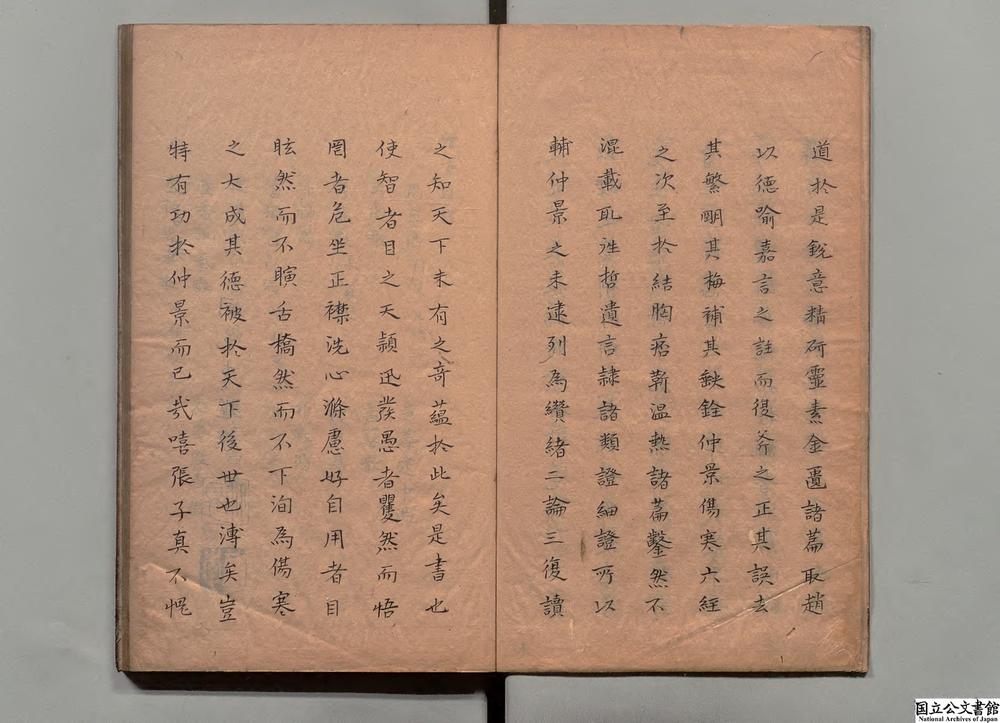 道於是銳意精研靈素金匱諸篇取趙
以德喻嘉言之註而復斧之正其誤去
其繁刪其晦補其缺銓仲景傷寒六經
之次至於結胸痞蘄溫熱諸篇鑿然不
混載取往哲遺言隸諸類證細證所以
輔仲景之未逮列為纘緒二論三復讀
之知天下未有之奇蘊於此矣是書也
使智者目之天穎迅發愚者矍然而悟
罔者危坐正襟洗心滌慮好自用者目
眩然而不瞚舌撟然而不下洵為傷寒
之大成其德被於天下後世也溥矣豈
特有功於仲景而已哉嘻張子真不愧
国立公文書館
National Archives of Japan